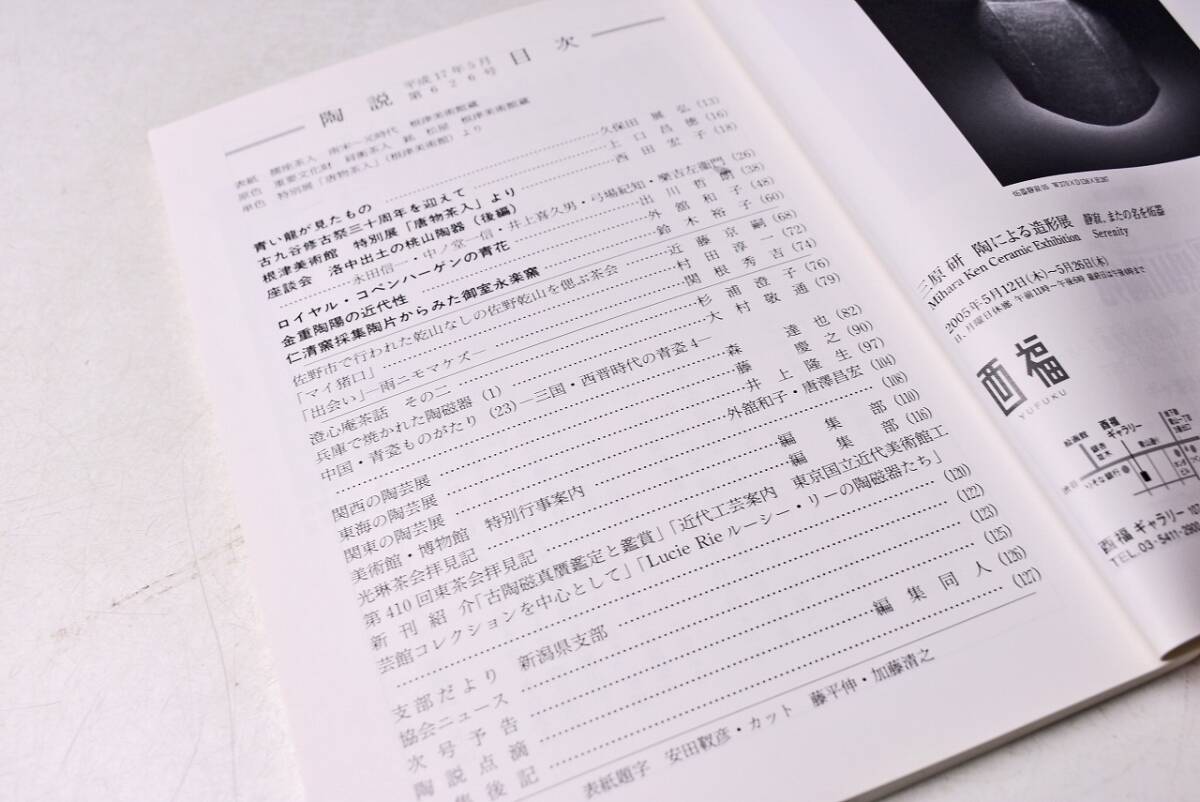 陶説 平成17年5月 第626号 目次
表紙 擂座茶入 南宋―元時代 根津美術館蔵
原色 重要文化財 肩衝茶入 銘 松屋 根津美術館蔵
単色 特別展「唐物茶入」(根津美術館)より
青い龍が見たもの 久保田展弘 (13)
古九谷修古祭三十周年を迎えて 上口昌徳 (16)
根津美術館 特別展「唐物茶入」より 西田宏子 (18)
座談会 洛中出土の桃山陶器(後編)
永田信一・中ノ堂一信・井上喜久男・弓場紀知・樂吉左衞門 (26)
ロイヤル・コペンハーゲンの青花 出川哲朗 (38)
金重陶陽の近代性 外舘和子 (48)
仁清窯採集陶片からみた御室永楽窯 鈴木裕子 (60)
佐野市で行われた乾山なしの佐野乾山を偲ぶ茶会 近藤京嗣 (68)
「マイ猪口」 村田淳一 (72)
「出会い」―雨ニモマケズ― 関根秀吉 (74)
澄心庵茶話 その二 杉浦澄子 (76)
兵庫で焼かれた陶磁器(1) 大村敬通 (79)
中国・青瓷ものがたり(23)―三国・西晋時代の青瓷4― 森達也 (82)
関西の陶芸展 藤慶之 (90)
東海の陶芸展 井上隆生 (97)
関東の陶芸展 外舘和子・唐澤昌宏 (104)
美術館・博物館 特別行事案内 (108)
光琳茶会拝見記 編集部 (110)
第410回東茶会拝見記 編集部 (116)
新刊紹介「古陶磁真贋鑑定と鑑賞」「近代工芸案内 東京国立近代美術館工
芸館コレクションを中心として」「Lucie Rie ルーシー・リーの陶磁器たち」
(120)
支部だより 新潟県支部 (122)
協会ニュース (123)
次号予告 (125)
陶説点滴 編集同人 (126)
集後記 (127)
表紙題字 安田靫彦・カット 藤平伸・加藤清之
三原研 陶による造形展 静寂、またの名を炻器
Mihara Ken Ceramic Exhibition Serenity
2005年5月12日(木)―5月26日(木)
日、月曜日休廊 午前11時―午後6時 最終日は午後4時まで
酉福
YUFUKU
酉福
ギャラリー
酉福 ギャラリー
TEL.03-5411-2900